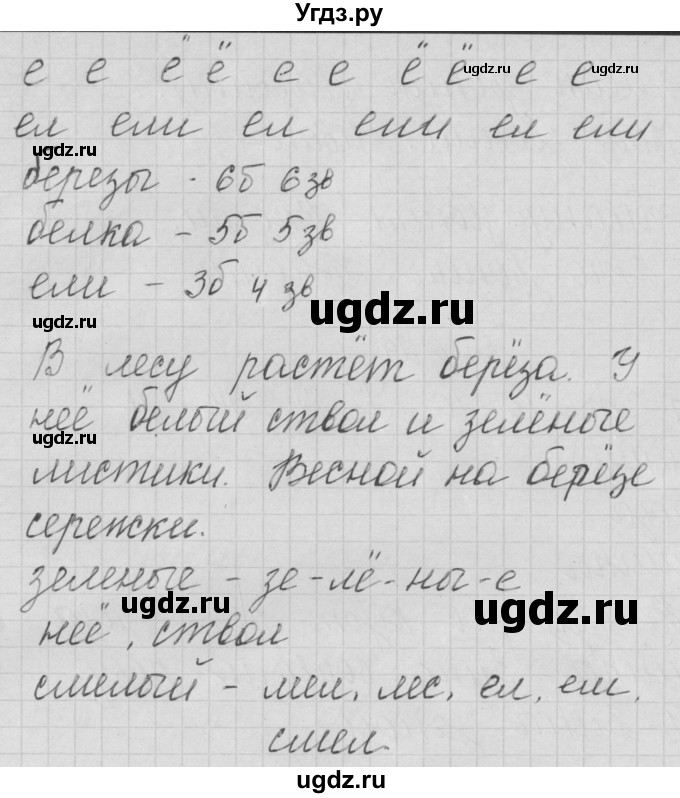 Угдз.ру
е е ё ё е е ё ё е е
ugdz.ru ugdz.ru
ел ели ел ели ел ели
ugdz.ru
березы - 6б 6зв
белка - 5б 5зв
ели - 3б 4 зв
ugdz.ru
ugdz.ru
В лесу растёт берёза. У
неё белый ствол и зелёные
ugdz.ru
листики. Весной на берёзе
сережки.
зеленые - зе-лё-ны-е
ugdz.ru ugdz.ru
неё, ствол
смелый - мел, лес, ел, ем,
ugdz.ru
смел.
ugdz.ru